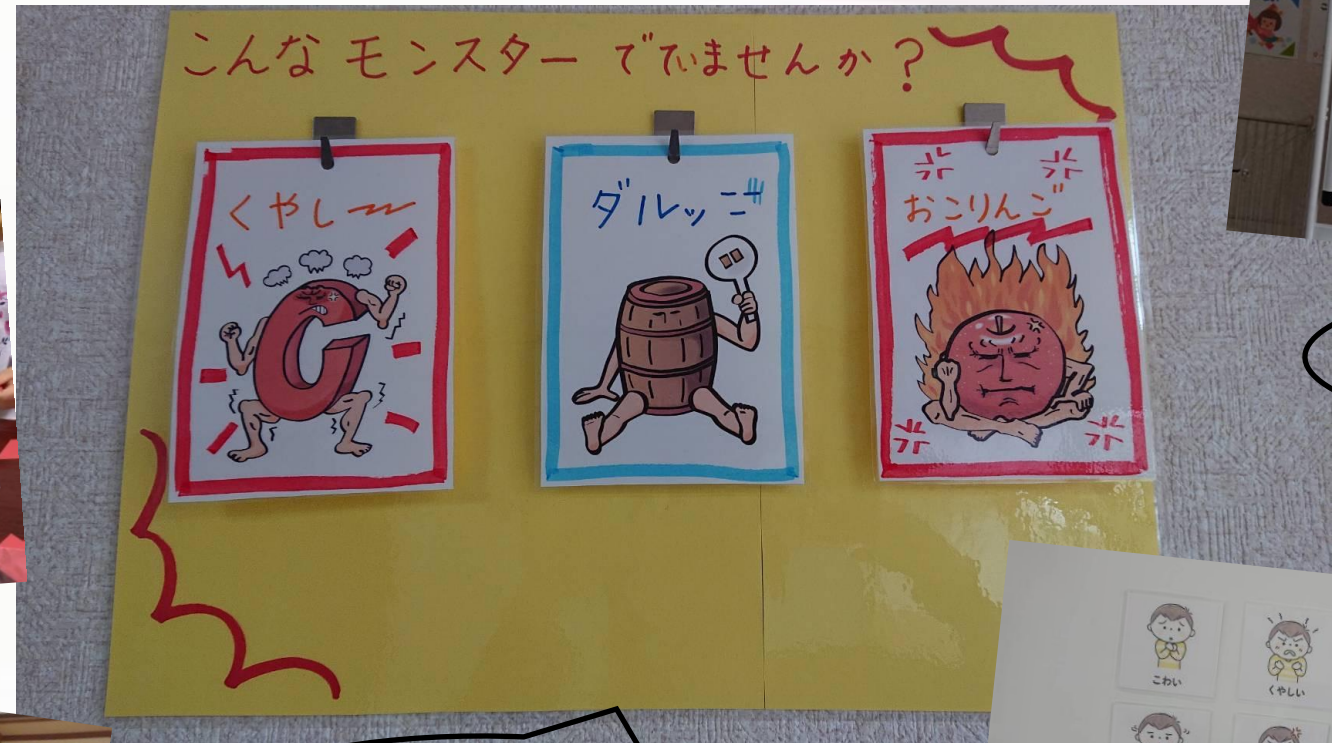 こんな モンスター でていませんか？
くやしー
ダルッご
おこりんご
こわい
くやしい